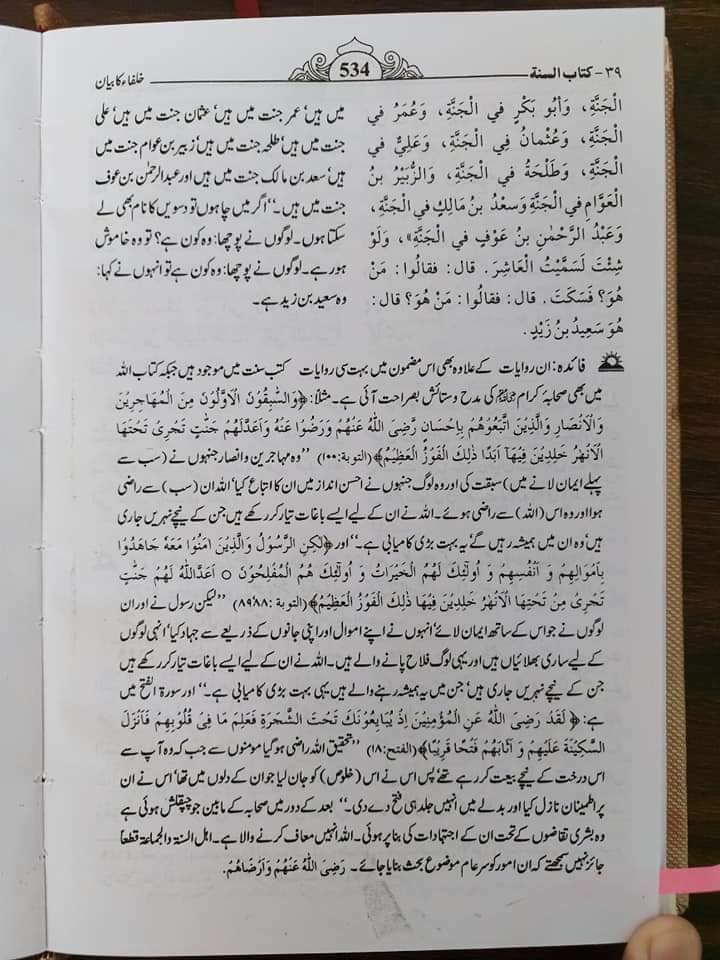 ٣٩ - كتاب السنة
534
خلفاء کا بیان
الْجَنَّةِ، وَأَبُو بَكْرٍ في الْجَنَّةِ، وَعُمَرُ في
الْجَنَّةِ، وَعُثْمانُ فِي الْجَنَّةِ، وَعَلِيٌّ في
الْجَنَّةِ، وَطَلْحَةُ في الْجَنَّةِ، وَالزُّبَيْرُ بنُ
الْعَوَّامِ في الْجَنَّةِ وَسعْدُ بنُ مَالِكٍ في الْجَنَّةِ،
وَعَبْدُ الرَّحْمٰنِ بنُ عَوْفٍ في الْجَنَّةِ»، وَلَوْ
شِئْتَ لَسَمَّيْتُ الْعَاشِرَ. قال: فقالُوا: مَنْ
هُوَ؟ فَسَكَتَ. قال: فقالُوا: مَنْ هُوَ؟ قال:
هُوَ سَعِيدُ بنُ زَيْدٍ.
میں ہیں، عمر جنت میں ہیں، عثمان جنت میں ہیں، علی
جنت میں ہیں، طلحہ جنت میں ہیں، زبیر بن عوام جنت میں
ہیں، سعد بن مالک جنت میں ہیں اور عبدالرحمٰن بن عوف
جنت میں ہیں۔“ اگر میں چاہوں تو دسویں کا نام بھی لے
سکتا ہوں۔ لوگوں نے پوچھا: وہ کون ہے؟ تو وہ خاموش
ہو رہے۔ لوگوں نے پوچھا: وہ کون ہے تو انہوں نے کہا:
وہ سعید بن زید ہے۔
فائدہ: ان روایات کے علاوہ بھی اس مضمون میں بہت سی روایات کتب سنت میں موجود ہیں جبکہ کتاب اللہ
میں بھی صحابۂ کرام ﷢ کی مدح و ستائش بصراحت آئی ہے۔ مثلاً: ﴿وَالسّٰبِقُوْنَ الْاَوَّلُوْنَ مِنَ الْمُهَاجِرِيْنَ
وَالْاَنْصَارِ وَالَّذِيْنَ اتَّبَعُوْهُمْ بِاِحْسَانٍ رَّضِيَ اللّٰهُ عَنْهُمْ وَرَضُوْا عَنْهُ وَاَعَدَّلَهُمْ جَنّٰتٍ تَجْرِيْ تَحْتَهَا
الْاَنْهٰرُ خٰلِدِيْنَ فِيْهَا اَبَدًا ذٰلِكَ الْفَوْزُ الْعَظِيْمُ﴾ (التوبة:۱۰۰) ”وہ مہاجرین و انصار جنہوں نے (سب سے
پہلے ایمان لانے میں) سبقت کی اور وہ لوگ جنہوں نے احسن انداز میں ان کا اتباع کیا، اللہ ان (سب) سے راضی
ہوا اور وہ اس (اللہ) سے راضی ہوئے۔ اللہ نے ان کے لیے ایسے باغات تیار کر رکھے ہیں جن کے نیچے نہریں جاری
ہیں، وہ ان میں ہمیشہ رہیں گے، یہ بہت بڑی کامیابی ہے۔“ اور ﴿لٰكِنِ الرَّسُوْلُ وَالَّذِيْنَ اٰمَنُوْا مَعَهٗ جَاهَدُوْا
بِاَمْوَالِهِمْ وَ اَنْفُسِهِمْ وَ اُولٰٓئِكَ لَهُمُ الْخَيْرَاتُ وَ اُولٰٓئِكَ هُمُ الْمُفْلِحُوْنَ ○ اَعَدَّاللّٰهُ لَهُمْ جَنّٰتٍ
تَجْرِيْ مِنْ تَحْتِهَا الْاَنْهٰرُ خٰلِدِيْنَ فِيْهَا ذٰلِكَ الْفَوْزُ الْعَظِيْمُ﴾ (التوبة:۸۸، ۸۹) ”لیکن رسول نے اور ان
لوگوں نے جو اس کے ساتھ ایمان لائے، انہوں نے اپنے اموال اور اپنی جانوں کے ذریعے سے جہاد کیا، انہی لوگوں
کے لیے ساری بھلائیاں ہیں اور یہی لوگ فلاح پانے والے ہیں۔ اللہ نے ان کے لیے ایسے باغات تیار کر رکھے ہیں
جن کے نیچے نہریں جاری ہیں، جن میں یہ ہمیشہ رہنے والے ہیں یہی بہت بڑی کامیابی ہے۔“ اور سورۃ الفتح میں
ہے: ﴿لَقَدْ رَضِيَ اللّٰهُ عَنِ الْمُؤْمِنِيْنَ اِذْ يُبَايِعُوْنَكَ تَحْتَ الشَّجَرَةِ فَعَلِمَ مَا فِيْ قُلُوْبِهِمْ فَاَنْزَلَ
السَّكِيْنَةَ عَلَيْهِمْ وَ اَثَابَهُمْ فَتْحًا قَرِيْبًا﴾ (الفتح:۱۸) ”تحقیق اللہ راضی ہو گیا مومنوں سے جب کہ وہ آپ سے
اس درخت کے نیچے بیعت کر رہے تھے، پس اس نے اس (خلوص) کو جان لیا جو ان کے دلوں میں تھا، اس نے ان
پر اطمینان نازل کیا اور بدلے میں انہیں جلد ہی فتح دے دی۔“ بعد کے دور میں صحابہ کے مابین جو چپقلش ہوئی ہے
وہ بشری تقاضوں کے تحت ان کے اجتہادات کی بنا پر ہوئی۔ اللہ انہیں معاف کرنے والا ہے۔ اہل السنة والجماعة قطعاً
جائز نہیں سمجھتے کہ ان امور کو سرعام موضوع بحث بنایا جائے۔ رَضِيَ اللّٰهُ عَنْهُمْ وَاَرْضَاهُمْ.